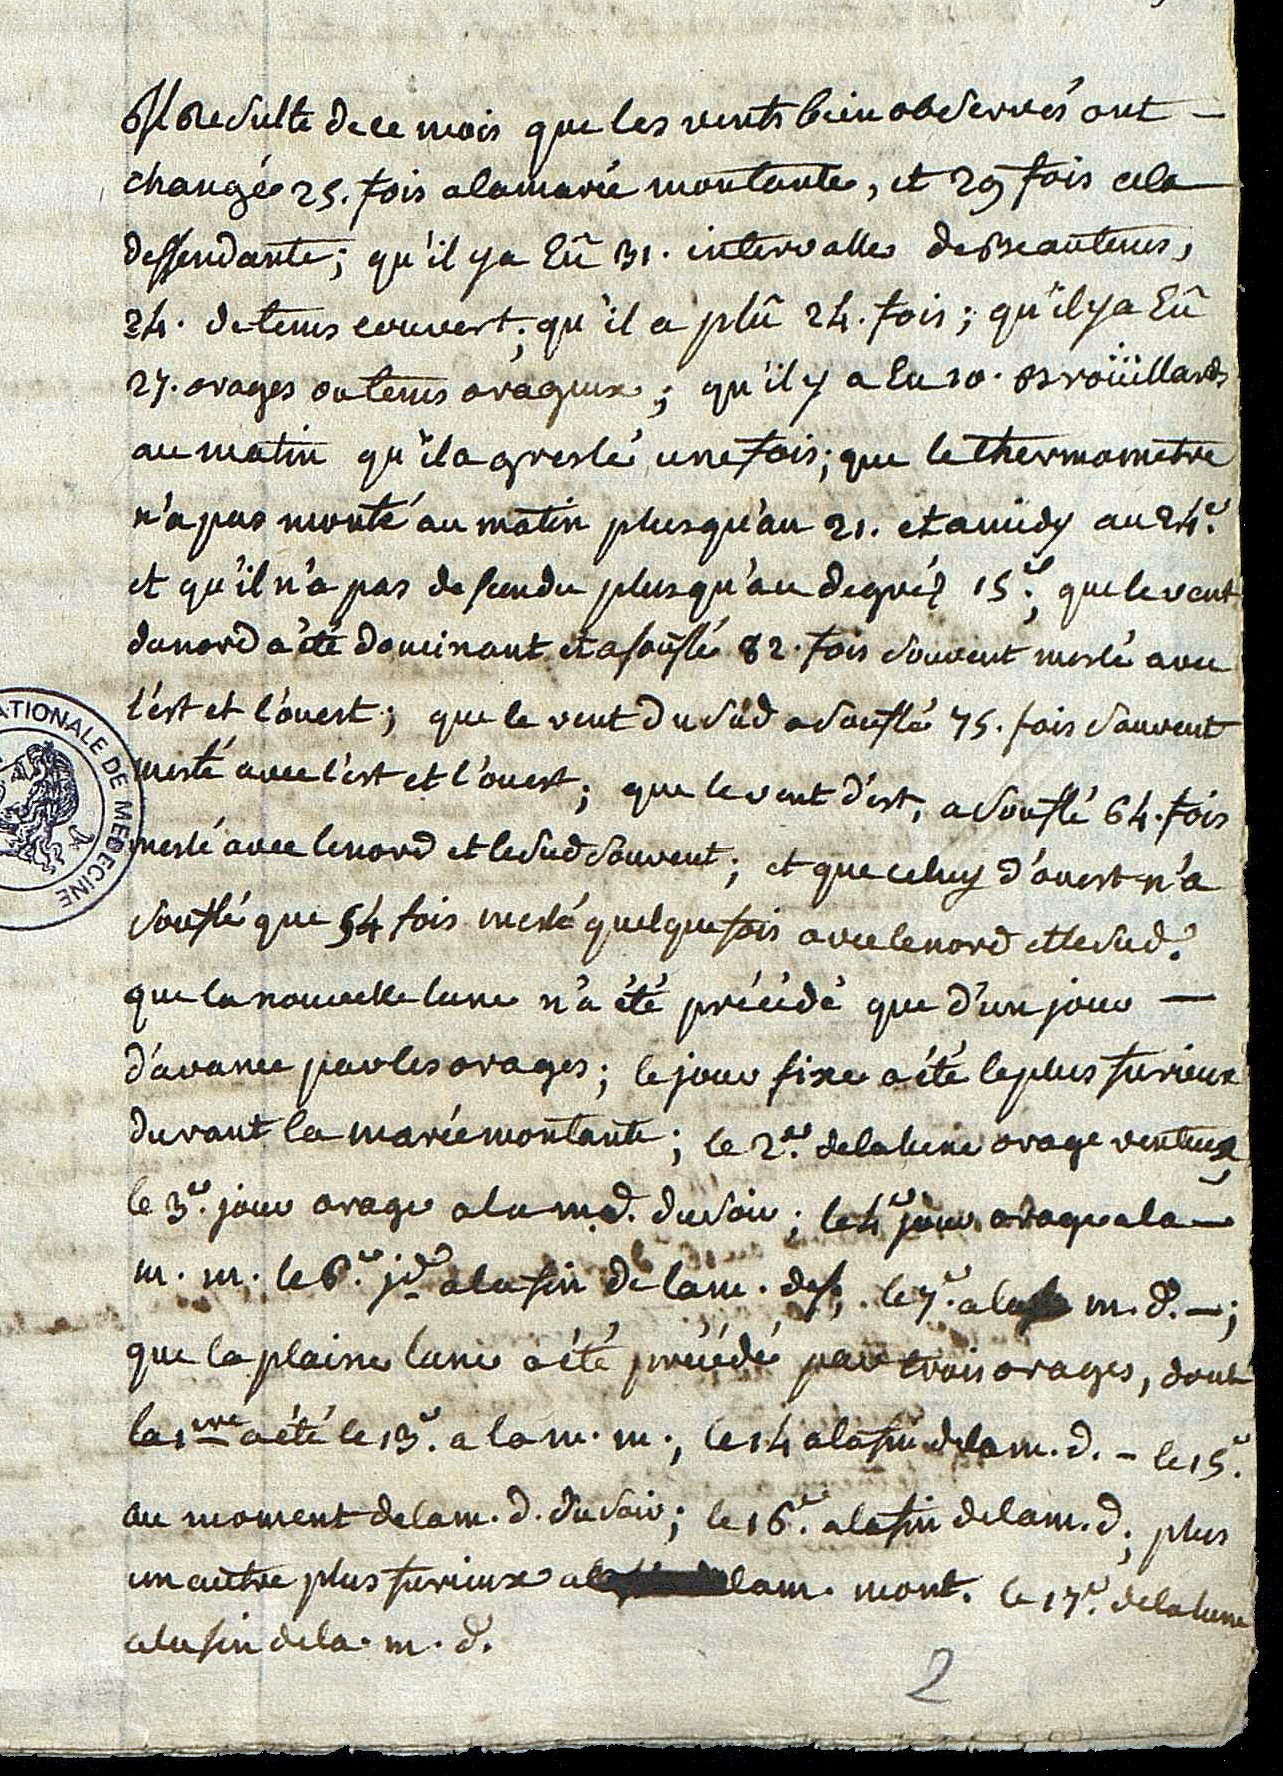 Il Resulte de ce mois que les vents bien observés ont —
changée 25. fois a la marée montante, et 29 fois a la —
dessendante; qu'il y a Eû 31. intervalles de Beautems,
24. de tems couvert; qu'il a plû 24. fois; qu'il y a Eû
27. orages ou tems orageux; qu'il y a Eu 10. Brouïllards
au matin qu'il a greslé une fois; que le thermometre
n'a pas monté au matin plus qu'au 21. et a midy au 24.e
et qu'il n'a pas dessendu plus qu'au degréz 15.e; que le vent
du nord a été dominant et a souflé 82. fois souvent meslé avec
l'est et l'ouest; que le vent du sud a souflé 75. fois souvent
meslé avec l'est et l'ouest; que le vent d'est, a souflé 64. fois
meslé avec le nord et le sud souvent; et que celuy d'ouest n'a
souflé que 54 fois meslé quelque fois avec le nord et le sud.
que la nouvelle lune n'a été précédé que d'un jour —
d'avance par les orages; le jour fixe a été le plus furieux
durant la marée montante; le 2.e de la lune orage venteux,
le 3.e jour orage a la m.d. du soir; le 4.e jour orage a la —
m. m. le 6.e jd a la fin de la m. des; le 7.e a la m. d. —;
que la plaine lune a été précédé par trois orages, dont
la 1ere a été le 13.e a la m. m., le 14 a la fin de la m. d. - le 15.e
au moment de la m. d. du soir; le 16.e a la fin de la m. d; plus
un autre plus furieux a la m. mont. le 17.e de la lune
a la fin de la. m. d.
2
ATIONALE DE MEDECINE